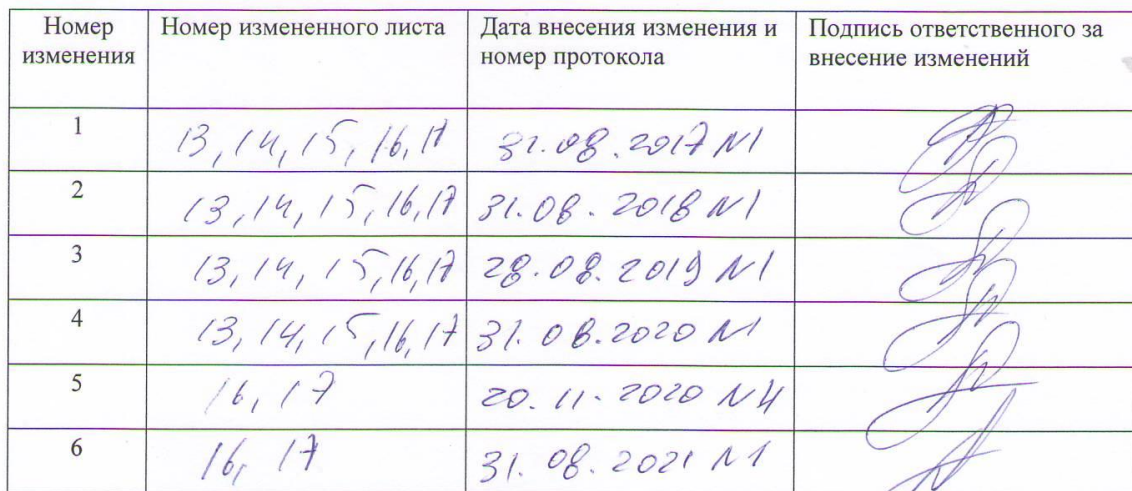 Номер изменения Номер измененного листа Дата внесения изменения и номер протокола Подпись ответственного за внесение изменений
1 13, 14, 15, 16, 17 31.08.2017 N1
2 13, 14, 15, 16, 17 31.08.2018 N1
3 13, 14, 15, 16, 17 28.08.2019 N1
4 13, 14, 15, 16, 17 31.08.2020 N1
5 16, 17 20.11.2020 N4
6 16, 17 31.08.2021 N1